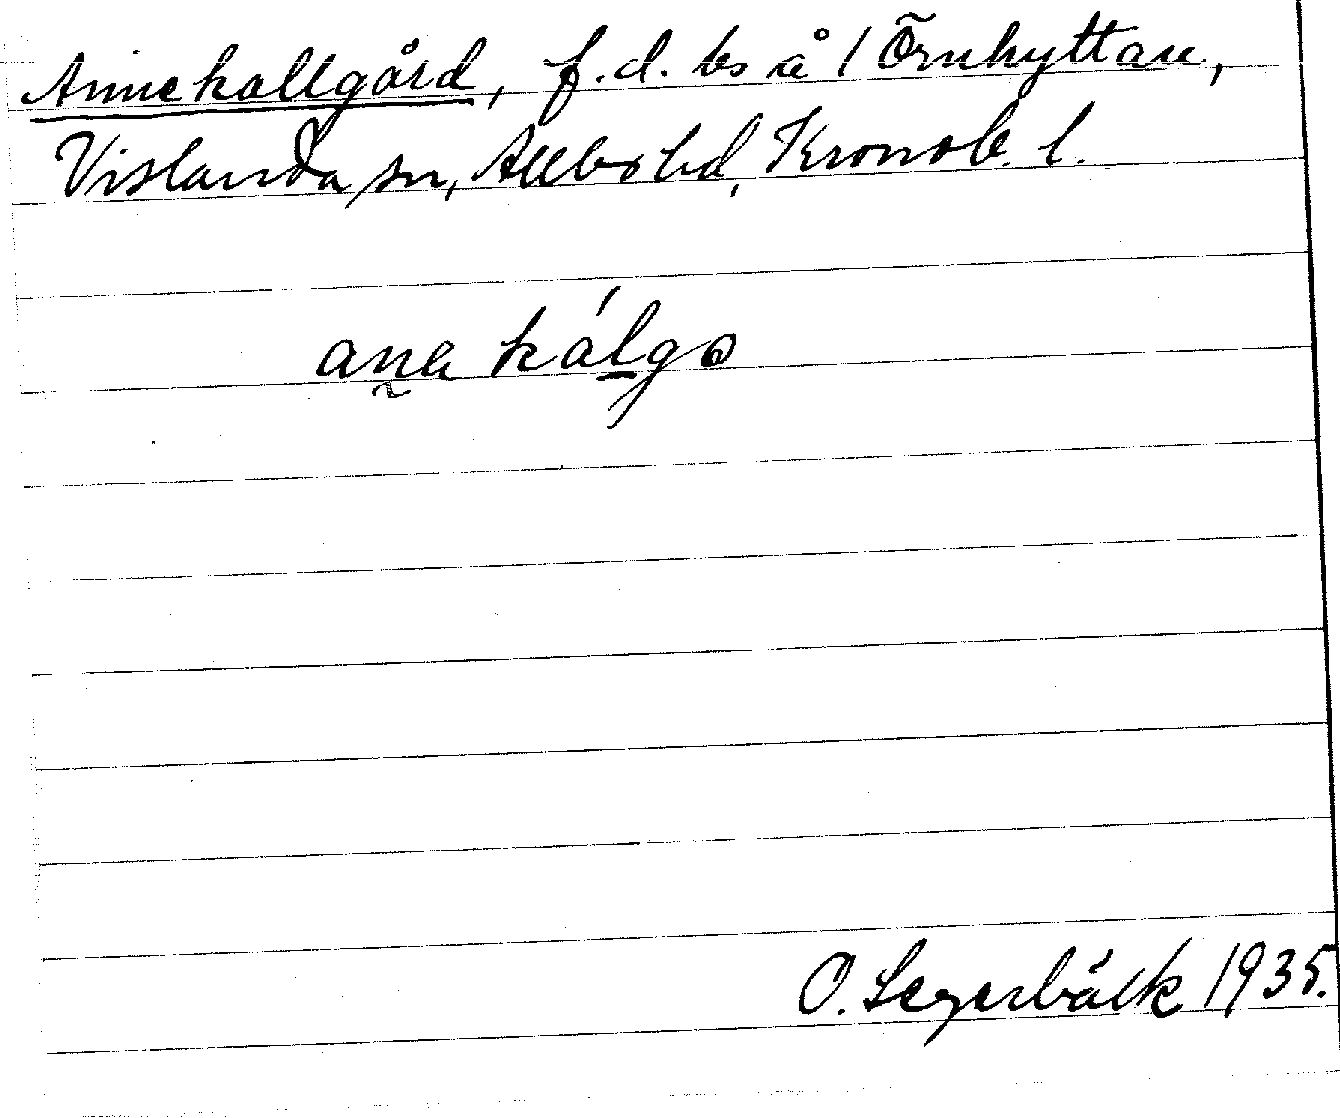 Annekallgård, f.d. bs å 1 Örnhyttan,
Vislanda sn, Allbo hd, Kronob. l.
ana kálgo
O. Segerbäck 1935.